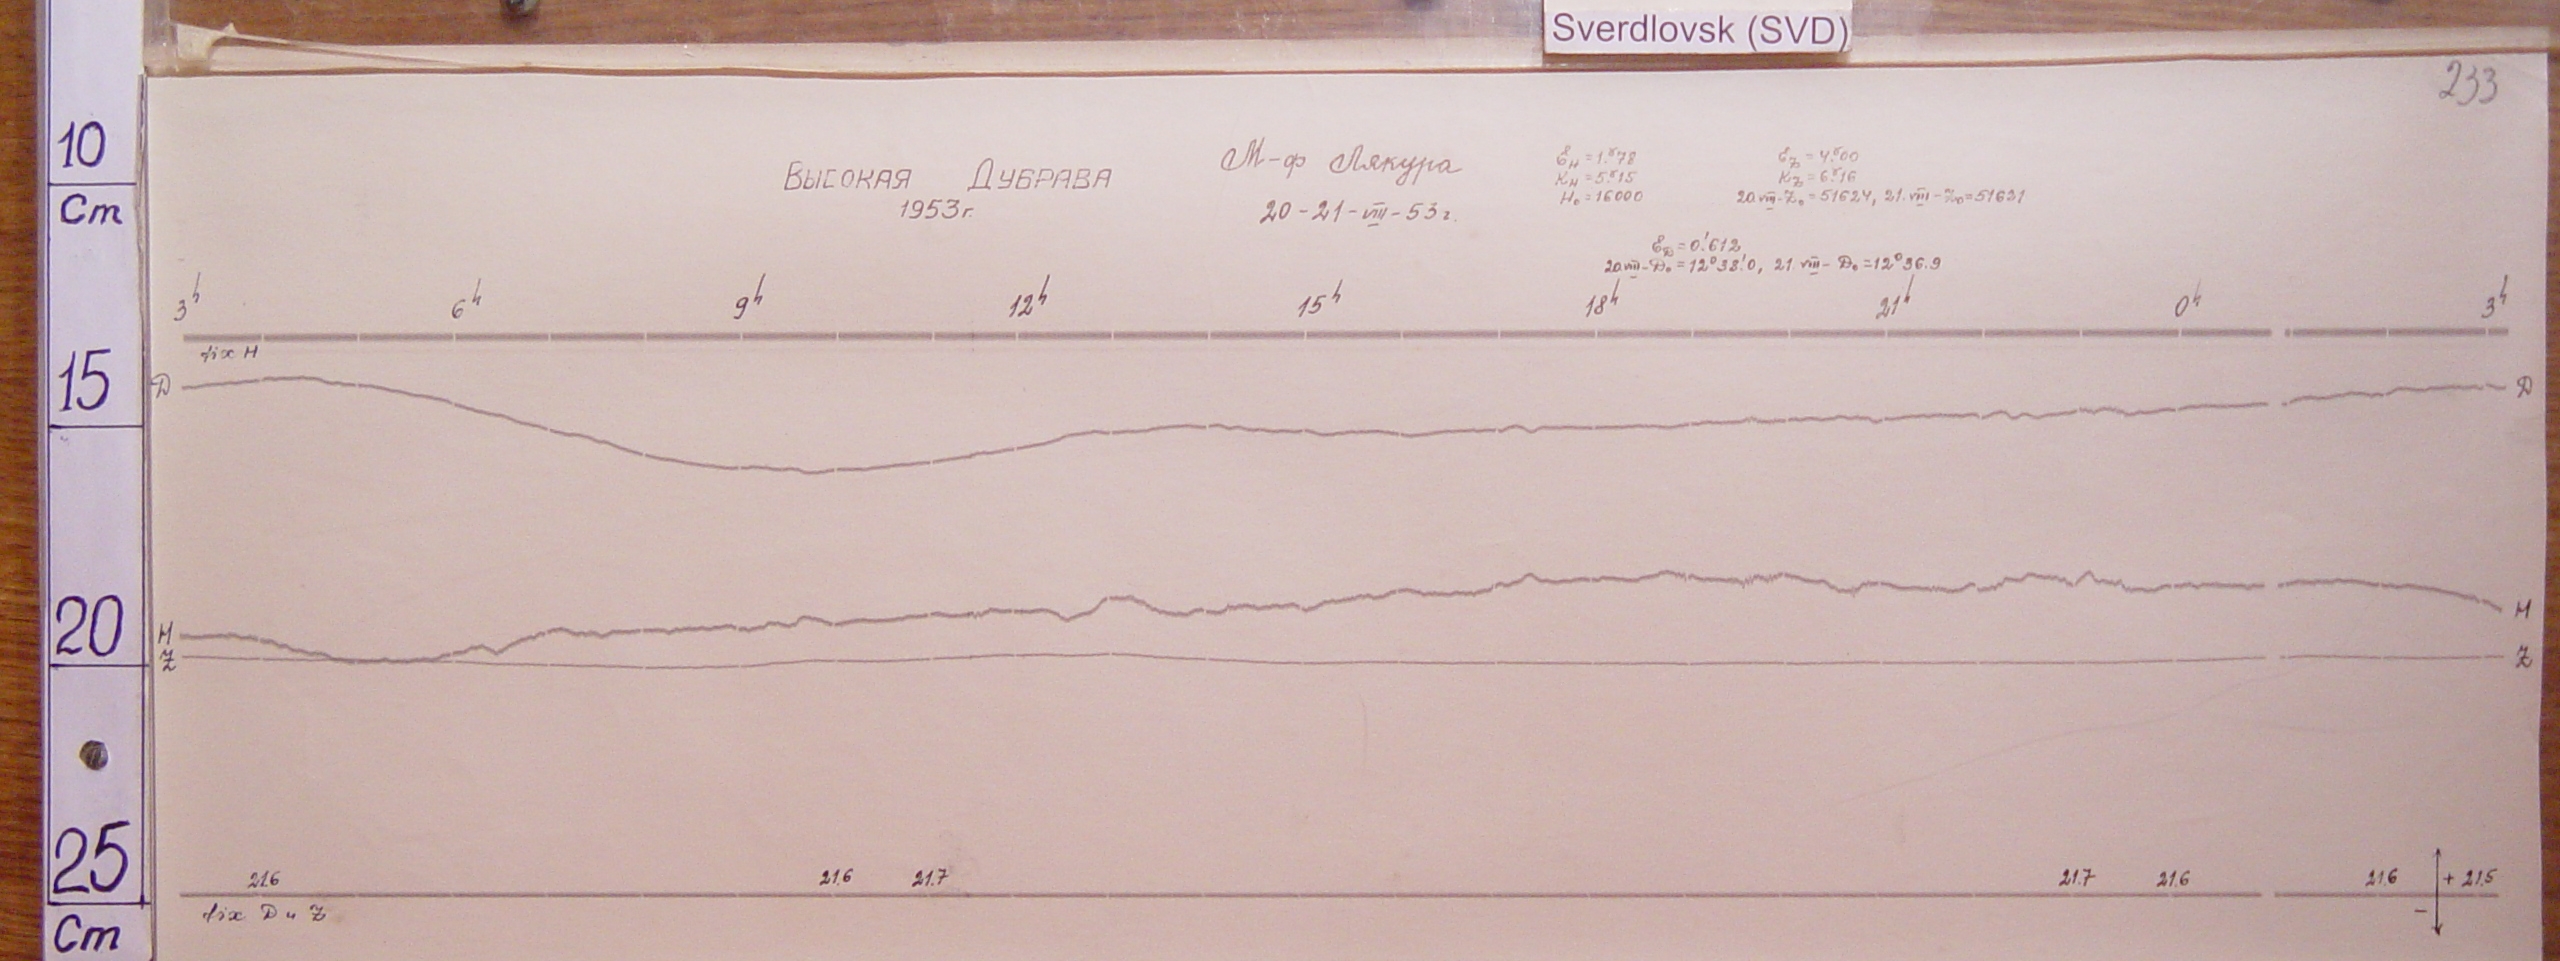 Sverdlovsk (SVD)
233
10
Cm
15
20
25
Cm
ВЫСОКАЯ ДУБРАВА
1953г.
М-ф Лякура
20-21-VIII-53г.
Ɛн=1.ᵞ78
Kн=5.ᵞ15
H₀=16000
Ɛz=4.ᵞ00
Kz=6.ᵞ16
20.VIII-Z₀=51624, 21.VIII-Z₀=51631
ƐD=0.'612
20.VIII-D₀=12°38.'0, 21.VIII-D₀=12°36.9
3h 6h 9h 12h 15h 18h 21h 0h 3h
fix H
D D
H H
Z Z
21.6 21.6 21.7 21.7 21.6 21.6 + 21.5
−
fix D и Z